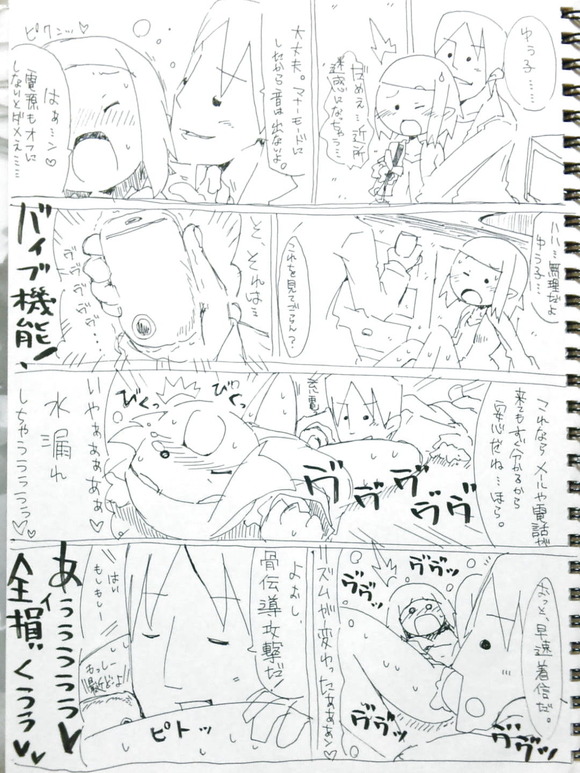 ゆう子……
だめぇ…近所
迷惑になっちゃう…
大丈夫。マナーモードに
したから音は出ないよ。
ピクンッ♡
はぁ…ン♡
電源もオフに
しないとダメぇ……
ハハ…無理だよ
ゆう子…
これを見てごらん?
そ、それは…
ヴヴヴヴヴ…
バイブ機能!
これなら メールや電話が
来てもすぐ分かるから
安心だね…ほら。
充電
ヴヴヴヴッ
びくっ
びくっ
いやぁぁぁぁぁ♡
水漏れ
しちゃうぅぅぅぅぅ♡
おっと、早速着信だ。
ヴヴッ
ヴヴッ
ヴヴッ
ヴヴッ
ヴヴッ
リズムが変わったぁぁぁン♡
よぉし、
骨伝導攻撃だ!
はい
もしもしー
もっしー
最近どよ!!
ピトッ
あぅぅぅぅぅぅ♡
全損